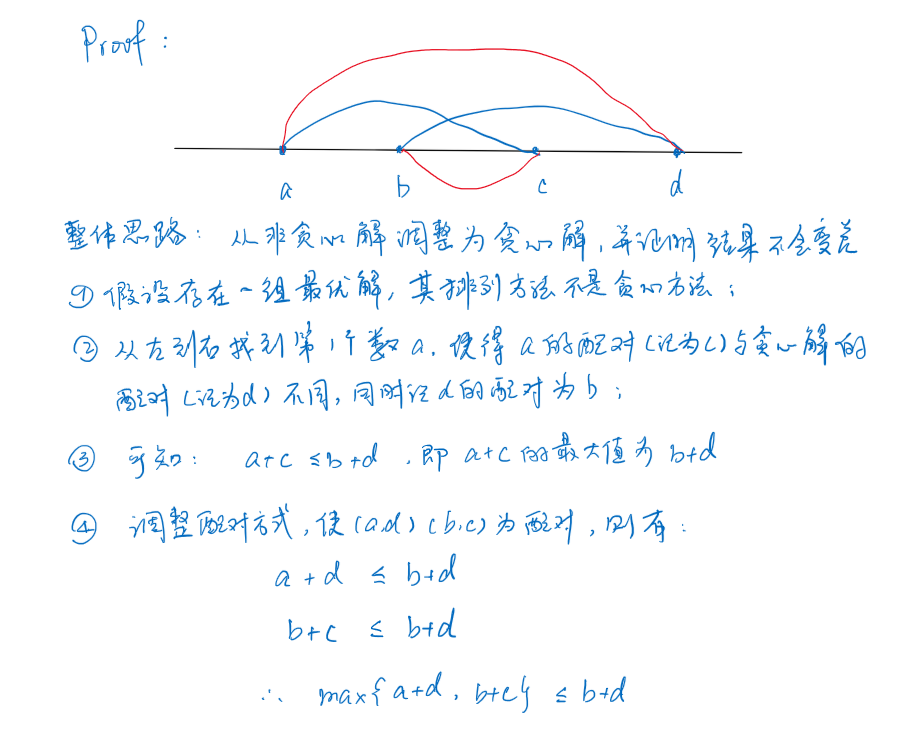 Proof :
a b c d
整体思路: 从非贪心解调整为贪心解, 并证明结果不会变差
① 假设存在一组最优解, 其排列方法不是贪心方法;
② 从左到右找到第1个数 a, 使得 a 的配对(记为c)与贪心解的
配对(记为d)不同, 同时记 d 的配对为 b;
③ 可知: a+c ≤ b+d , 即 a+c 的最大值为 b+d
④ 调整配对方式, 使 (a,d) (b,c) 为配对, 则有:
a + d ≤ b+d
b+c ≤ b+d
∴ max{a+d, b+c} ≤ b+d